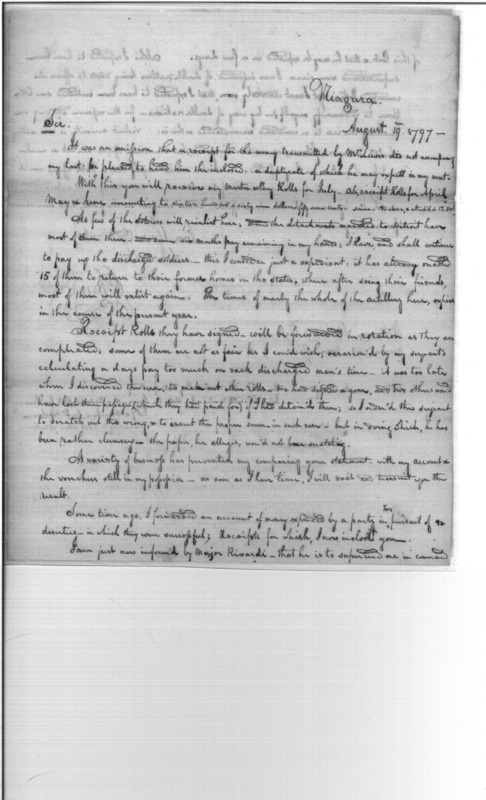 Niagara.
August 19. 1797 —
Sir.
It was an omission that a receipt for the money transmitted by Mr Lewis did not accompany
my last. Be pleased to hand him the inclosed. a duplicate of which he may expect in my next.
With this you will receive my muster & Pay Rolls for July. Also, receipt Rolls for April
May & June amounting to sixteen hundred & sixty nine dollars fifty
As few of the soldiers will reinlist here, the detachments marched to Detroit have
most of them their six months pay remaining in my hands, I have and shall continue
to pay up the discharged soldiers — this I consider just & expedient: it has already enabled
15 of them to return to their former homes in the states, where after seeing their friends,
most of them will enlist again. The times of nearly the whole of the artillery here, expire
in the course of the present year.
Receipt Rolls they have signed will be forwarded in rotation as they are
completed; some of them are not as fair as I could wish; occasion'd by my sergeant's
calculating a days pay too much on each discharged man's time — it was too late
when I discovered the error, to make out other rolls — two had signed & gone, and two others would
have lost their passages (which they had paid for) if I had detain'd them; so I order'd the sergeant
to scratch out the wrong & to insert the proper sum in each case — but in doing which, he has
been rather clumsy — the paper, he alleges, would not bear scratching.
A variety of business has prevented my comparing your statement with my account &
the vouchers still in my possession — as soon as I have time, I will do it and transmit you the
result.
Some time ago, I forwarded an account of money expended by a party in the pursuit of
deserters — in which they were successful; Receipts for which, I now inclose you.
I am just now inform'd by Major Rivardi — that he is to supercede me in command